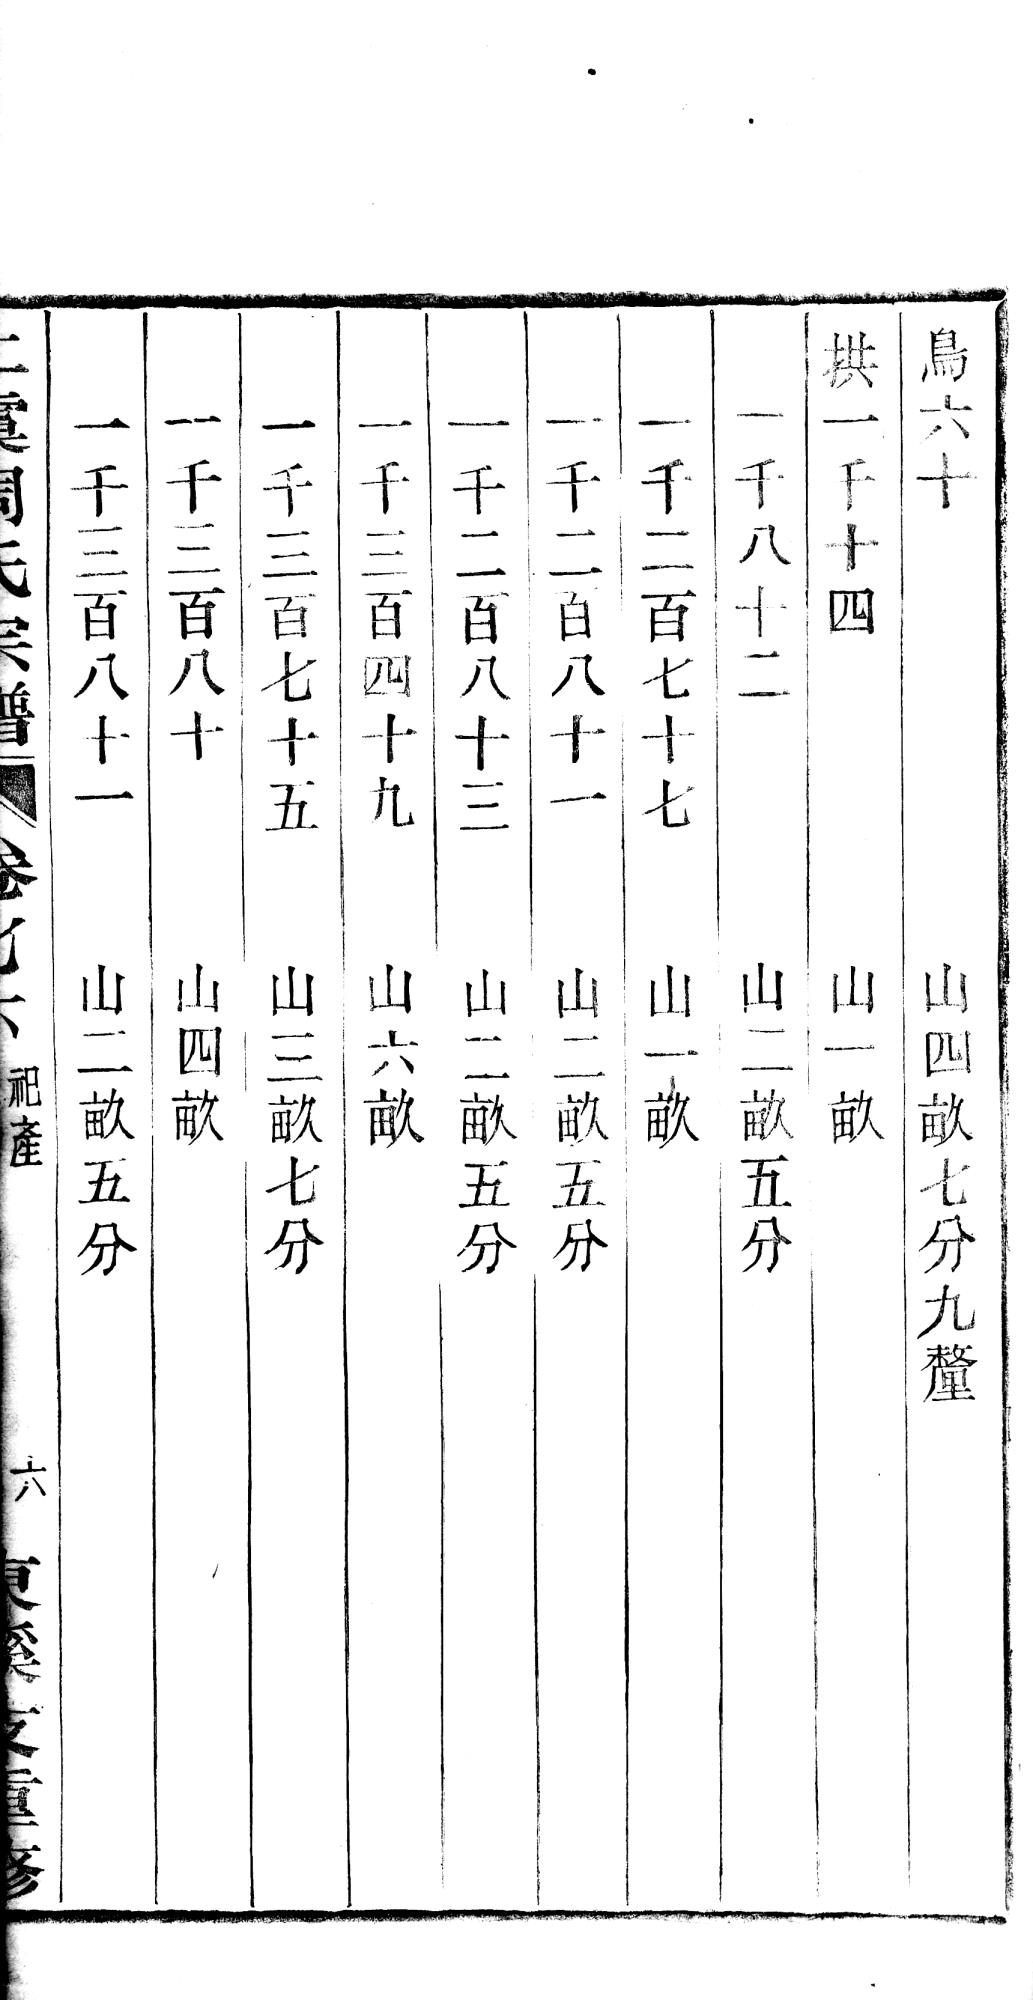 鳥六十 山四畝七分九釐
拱一千十四 山一畝
一千八十二 山二畝五分
一千二百七十七 山一畝
一千二百八十一 山二畝五分
一千二百八十三 山二畝五分
一千三百四十九 山六畝
一千三百七十五 山三畝七分
一千三百八十 山四畝
一千三百八十一 山二畝五分
虞周氏宗譜 卷 六 祀產 六 東溪支重修